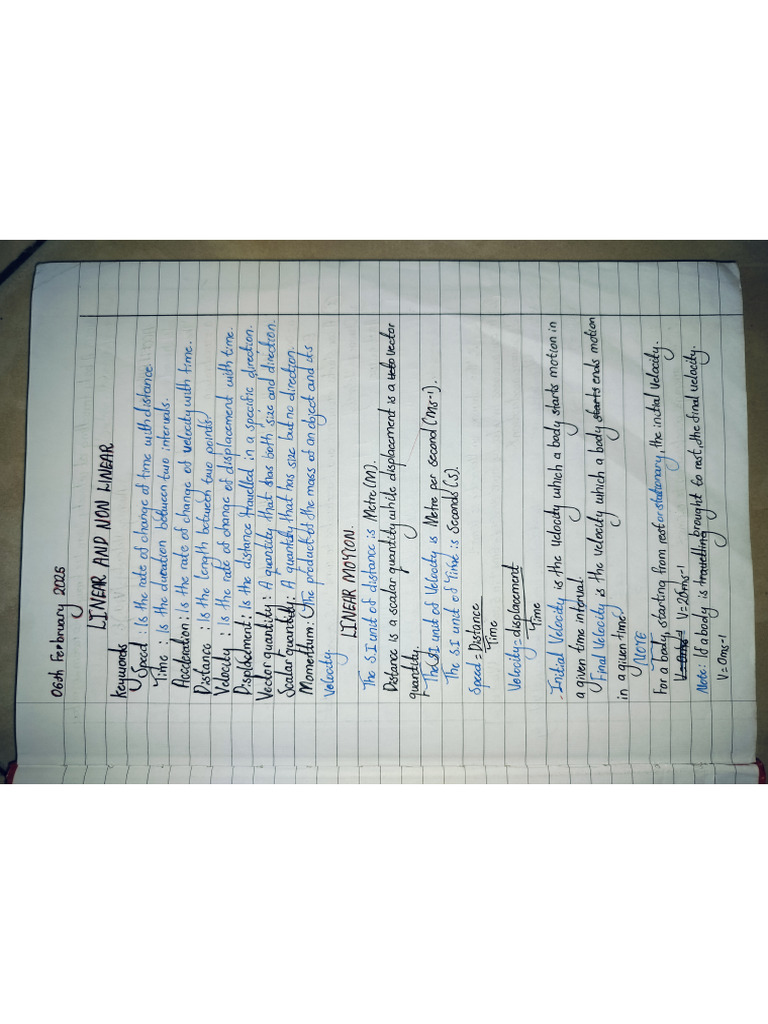 06th Ferbruary 2026
LINEAR AND NON LINEAR
Keywords
Speed : Is the rate of change of time with distance.
Time : Is the duration between two intervals.
Acceleration : Is the rate of change of velocity with time.
Distance : Is the length between two points.
Velocity : Is the rate of change of displacement with time.
Displacement : Is the distance travelled in a specific direction.
Vector quantity : A quantity that has both size and direction.
Scalar quantity : A quantity that has size but no direction.
Momentum : The product of the mass of an object and its
velocity.
LINEAR MOTION.
The SI unit of distance is Metre (M).
Distance is a scalar quantity while displacement is a vector
quantity.
The SI unit of Velocity is Metre per second (Ms-1).
The SI unit of Time is Seconds (s).
Speed = Distance
Time
Velocity = displacement
Time
- Initial Velocity is the velocity which a body starts motion in
a given time interval.
Final Velocity is the velocity which a body starts ends motion
in a given time.
NOTE
For a body, starting from rest or stationary, the initial velocity.
V = 0ms-1 V = 26ms-1
Note: If a body is travelling brought to rest, the final velocity.
V = 0ms-1